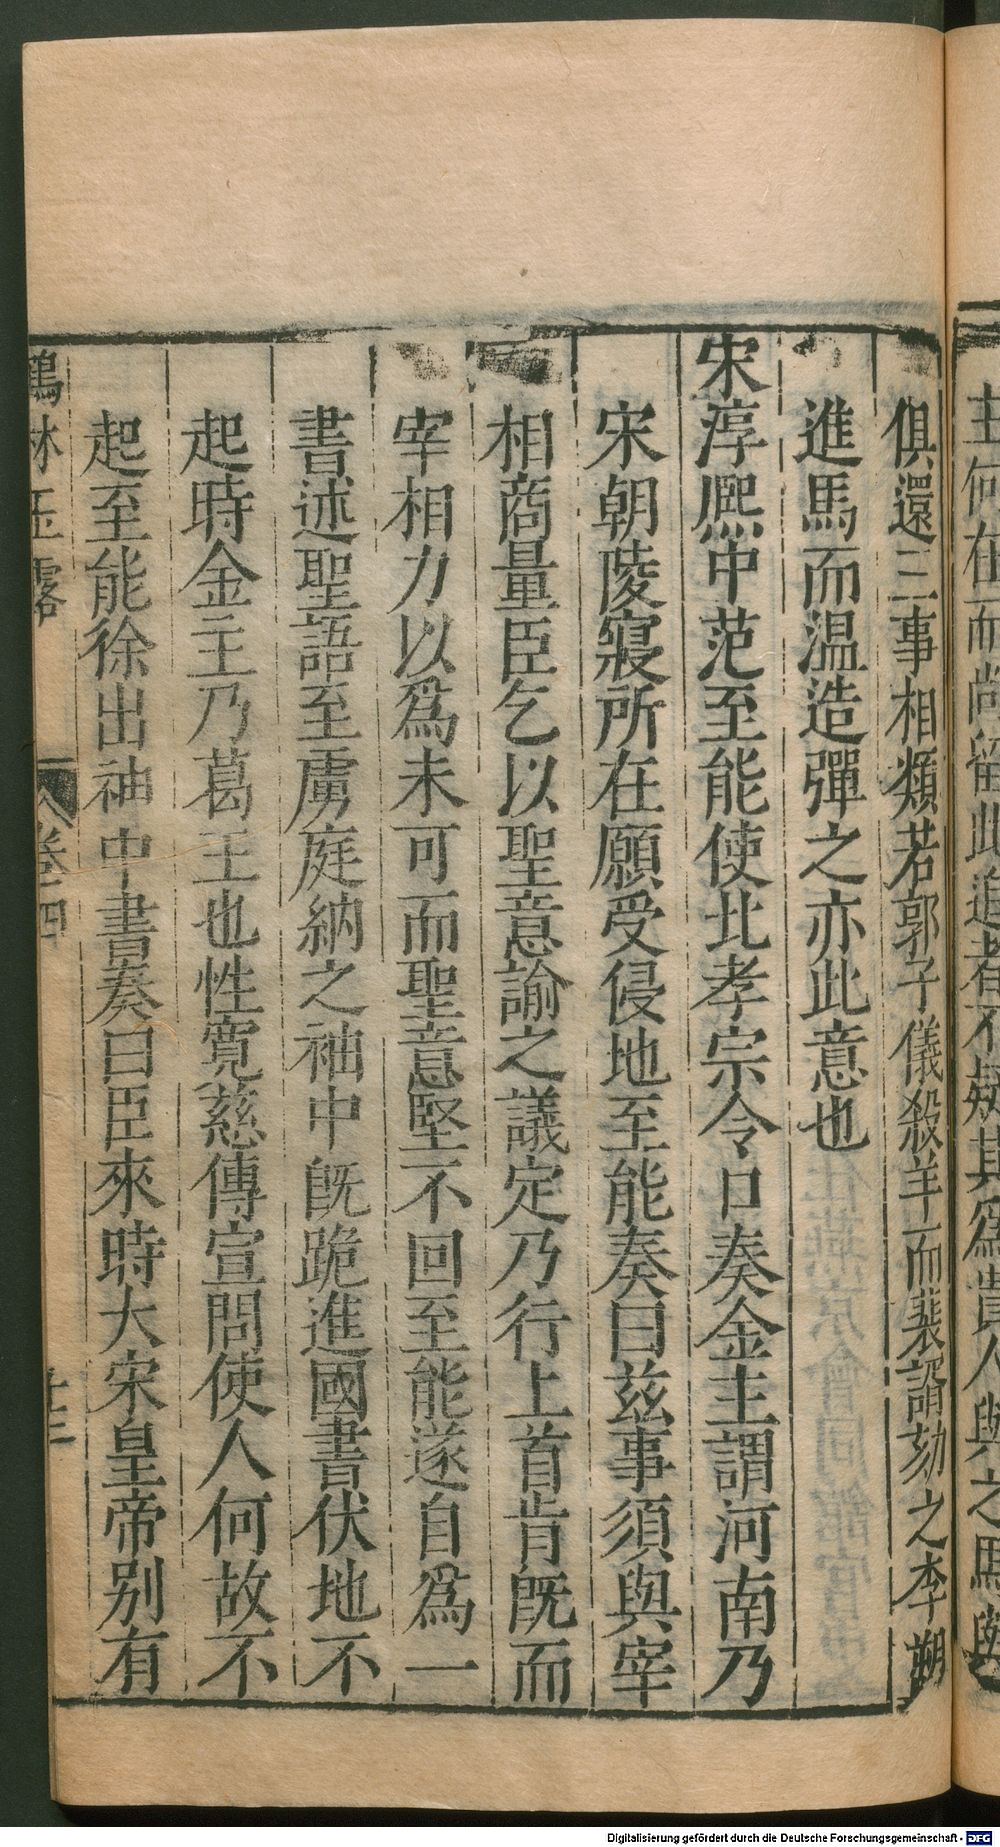 主何在而尚留此追者不疑其爲貴人與之馬與
俱還三事相類若郭子儀殺羊而裴諝劾之李
進馬而温造彈之亦此意也
宋淳熙中范至能使北孝宗令口奏金主謂河南乃
宋朝陵寢所在願受侵地至能奏曰兹事須與宰
相商量臣乞以聖意諭之議定乃行上首肯既而
宰相力以爲未可而聖意堅不回至能遂自爲一
書述聖語至虜庭納之袖中既跪進國書伏地不
起時金主乃葛王也性寬慈傳宣問使人何故不
起至能徐出袖中書奏曰臣來時大宋皇帝别有
鶴林玉露
卷四
Digitalisierung gefördert durch die Deutsche Forschungsgemeinschaft - DFG